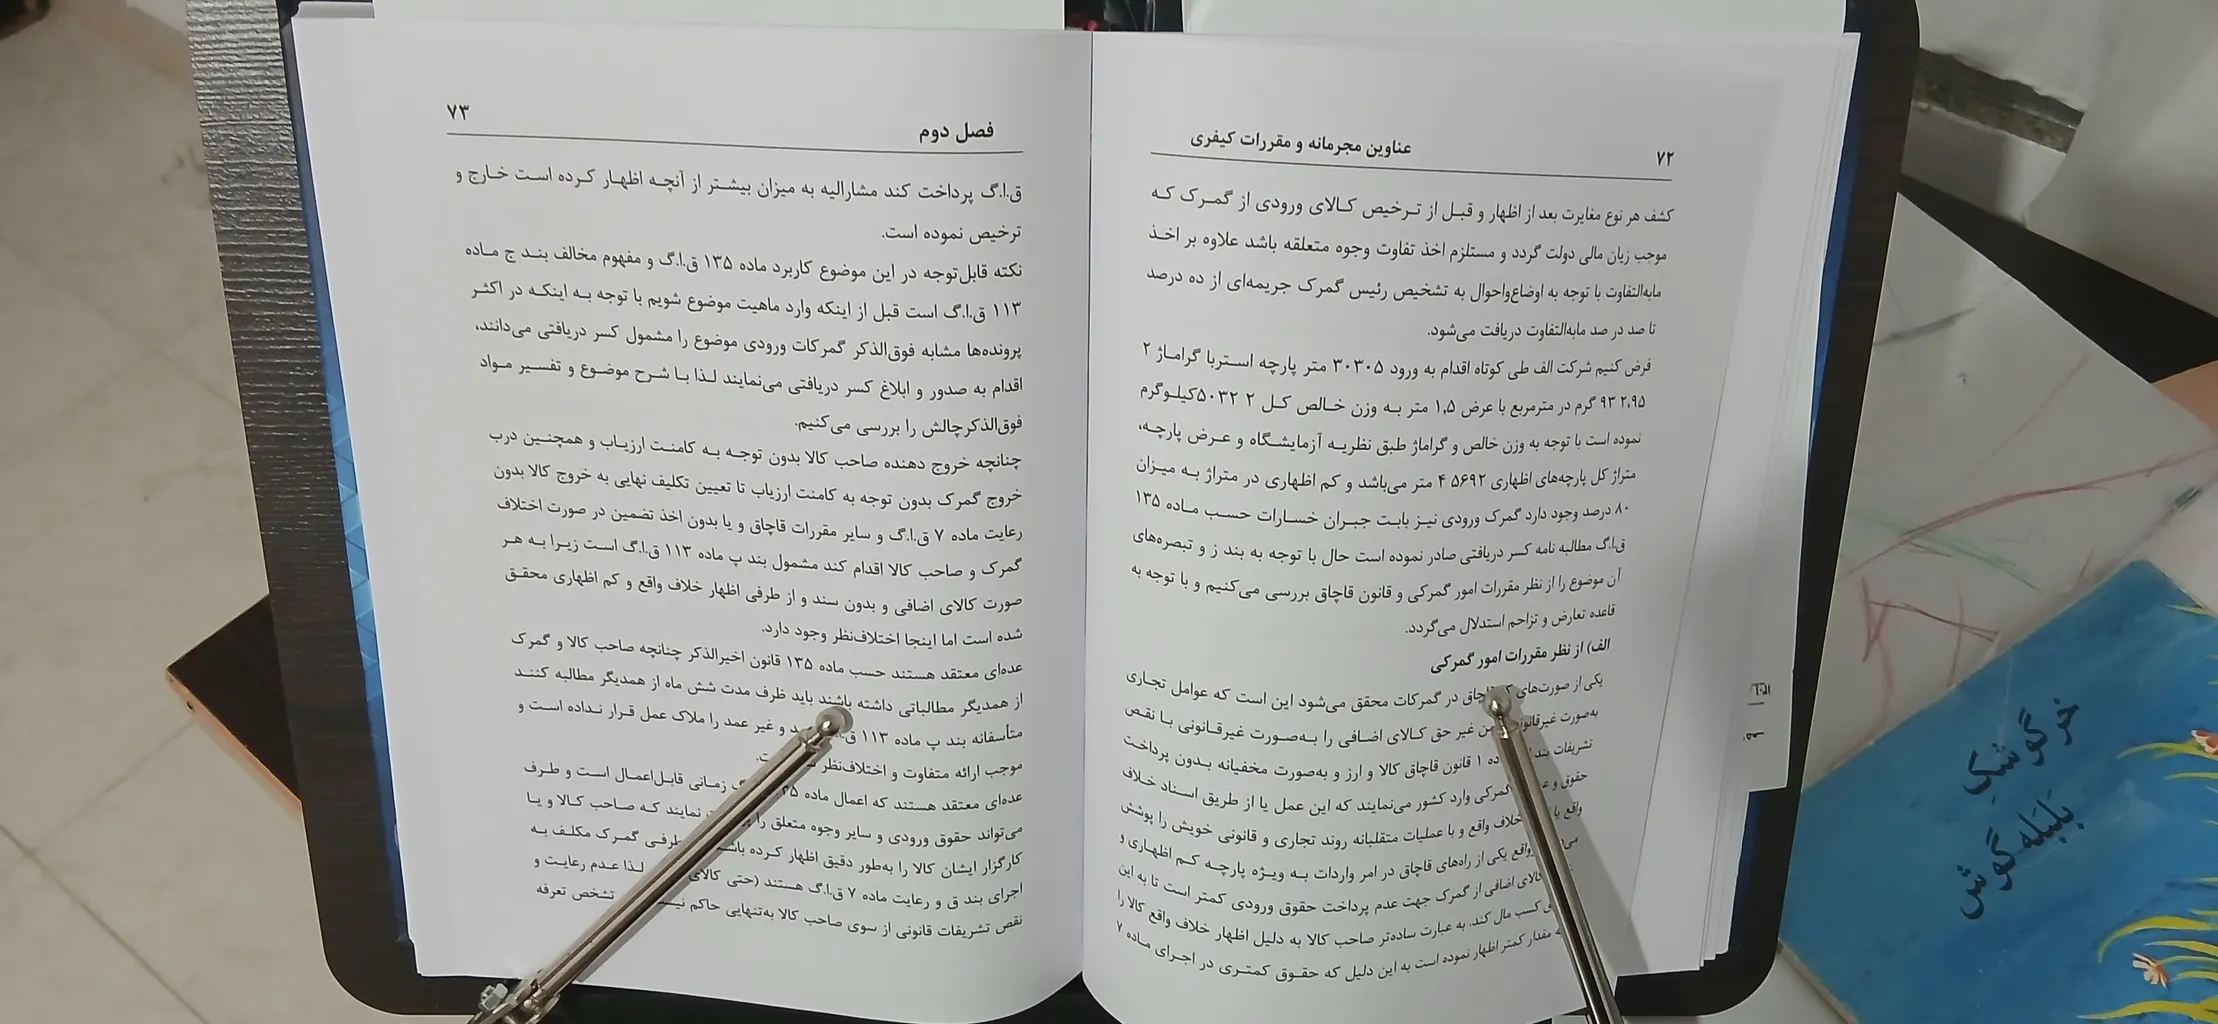 ۷۲
عناوین مجرمانه و مقررات کیفری
کشف هر نوع مغایرت بعد از اظهار و قبل از ترخیص کالای ورودی از گمرک که
موجب زیان مالی دولت گردد و مستلزم اخذ تفاوت وجوه متعلقه باشد علاوه بر اخذ
مابه‌التفاوت با توجه به اوضاع‌واحوال به تشخیص رئیس گمرک جریمه‌ای از ده درصد
تا صد در صد مابه‌التفاوت دریافت می‌شود.
فرض کنیم شرکت الف طی کوتاه اقدام به ورود ۳۰۳۰۵ متر پارچه استربا گراماژ ۲
۹۳ ۲.۹۵ گرم در مترمربع با عرض ۱٫۵ متر به وزن خالص کل ۲ ۵۰۳۲کیلوگرم
نموده است با توجه به وزن خالص و گراماژ طبق نظریه آزمایشگاه و عرض پارچه،
متراژ کل پارچه‌های اظهاری ۵۶۹۲ ۴ متر می‌باشد و کم اظهاری در متراژ به میزان
۸۰ درصد وجود دارد گمرک ورودی نیز بابت جبران خسارات حسب ماده ۱۳۵
ق.ا.گ مطالبه نامه کسر دریافتی صادر نموده است حال با توجه به بند ز و تبصره‌های
آن موضوع را از نظر مقررات امور گمرکی و قانون قاچاق بررسی می‌کنیم و با توجه به
قاعده تعارض و تزاحم استدلال می‌گردد.
الف) از نظر مقررات امور گمرکی
یکی از صورت‌های قاچاق در گمرکات محقق می‌شود این است که عوامل تجاری
به‌صورت غیرقانونی من غیر حق کالای اضافی را به‌صورت غیرقانونی با نقص
تشریفات بند ۱ قانون قاچاق کالا و ارز و به‌صورت مخفیانه بدون پرداخت
حقوق و گمرکی وارد کشور می‌نمایند که این عمل یا از طریق اسناد خلاف
واقع یا خلاف واقع و با عملیات متقلبانه روند تجاری و قانونی خویش را پوشش
واقع یکی از راه‌های قاچاق در امر واردات به ویژه پارچه کم اظهاری و
کالای اضافی از گمرک جهت عدم پرداخت حقوق ورودی کمتر است تا به این
کسب مال کند. به عبارت ساده‌تر صاحب کالا به دلیل اظهار خلاف واقع کالا را
مقدار کمتر اظهار نموده است به این دلیل که حقوق کمتری در اجرای ماده ۷
فصل دوم
۷۳
ق.ا.گ پرداخت کند مشارالیه به میزان بیشتر از آنچه اظهار کرده است خارج و
ترخیص نموده است.
نکته قابل‌توجه در این موضوع کاربرد ماده ۱۳۵ ق.ا.گ و مفهوم مخالف بند ج ماده
۱۱۳ ق.ا.گ است قبل از اینکه وارد ماهیت موضوع شویم با توجه به اینکه در اکثر
پرونده‌ها مشابه فوق‌الذکر گمرکات ورودی موضوع را مشمول کسر دریافتی می‌دانند،
اقدام به صدور و ابلاغ کسر دریافتی می‌نمایند لذا با شرح موضوع و تفسیر مواد
فوق‌الذکرچالش را بررسی می‌کنیم.
چنانچه خروج دهنده صاحب کالا بدون توجه به کامنت ارزیاب و همچنین درب
خروج گمرک بدون توجه به کامنت ارزیاب تا تعیین تکلیف نهایی به خروج کالا بدون
رعایت ماده ۷ ق.ا.گ و سایر مقررات قاچاق و یا بدون اخذ تضمین در صورت اختلاف
گمرک و صاحب کالا اقدام کند مشمول بند پ ماده ۱۱۳ ق.ا.گ است زیرا به هر
صورت کالای اضافی و بدون سند و از طرفی اظهار خلاف واقع و کم اظهاری محقق
شده است اما اینجا اختلاف‌نظر وجود دارد.
عده‌ای معتقد هستند حسب ماده ۱۳۵ قانون اخیرالذکر چنانچه صاحب کالا و گمرک
از همدیگر مطالباتی داشته باشند باید ظرف مدت شش ماه از همدیگر مطالبه کنند
متأسفانه بند پ ماده ۱۱۳ و غیر عمد را ملاک عمل قرار نداده است و
موجب ارائه متفاوت و اختلاف‌نظر
عده‌ای معتقد هستند که اعمال ماده زمانی قابل‌اعمال است و طرف
می‌تواند حقوق ورودی و سایر وجوه متعلق را نمایند که صاحب کالا و یا
کارگزار ایشان کالا را به‌طور دقیق اظهار کرده طرفی گمرک مکلف به
اجرای بند ق و رعایت ماده ۷ ق.ا.گ هستند (حتی کالای لذا عدم رعایت و
نقص تشریفات قانونی از سوی صاحب کالا به‌تنهایی حاکم تشخص تعرفه
خرگوشکِ
بَلبَله گوش